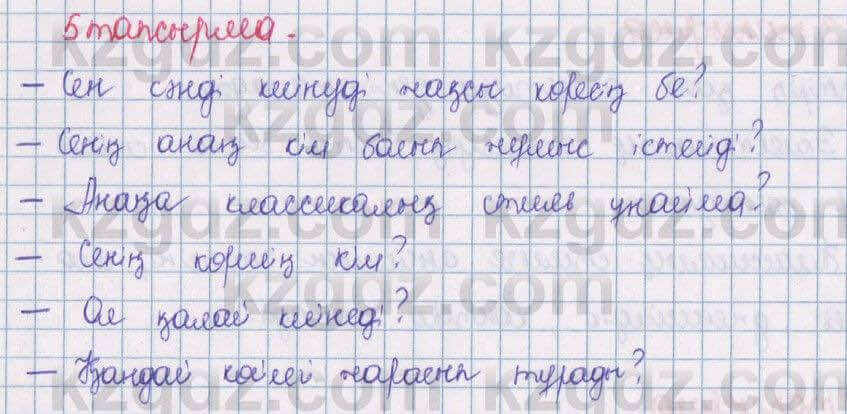 5 тапсырма.
– Сен сәнді киінуді жақсы көресің бе?
– Сенің анаң кім болып жұмыс істейді?
– Анаңа классикалық стиль ұнайма?
– Сенің көршің кім?
– Ол қалай киінеді?
– Қандай көйлек жарасып тұрады?
kzgdz.com